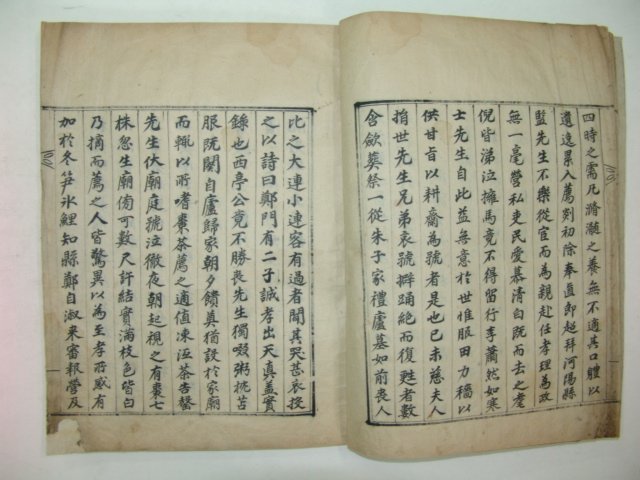 四時之需凡滫瀡之養無不適其口體以
遺逸累入薦剡初除奉直即超拜河陽縣
監先生不樂從宦而為親赴任孝理為政
無一毫營私吏民愛慕清白旣而去之耄
倪皆涕泣擁馬竟不得留行李蕭然如寒
士先生自此益無意於世惟服田力穡以
供甘旨以耕齋為號者是也已未慈夫人
捐世先生兄弟哀號擗踊絶而復甦者數
含斂葬祭一從朱子家禮廬墓如前喪人
比之大連小連客有過者聞其哭甚哀投
之以詩曰鄭門有二子誠孝出天真盖實
錄也西亭公竟不勝喪先生獨啜粥枕苫
服旣闋自廬歸家朝夕饋奠猶設於家廟
而輒以所嗜棗茶薦之適值凍沍茶告罄
先生伏廟庭號泣徹夜朝起視之有棗七
株忽生廟側可數尺許結實滿枝色皆白
乃摘而薦之人皆驚異以為至孝所感有
加於冬笋氷鯉知縣鄭自淑来審報營及